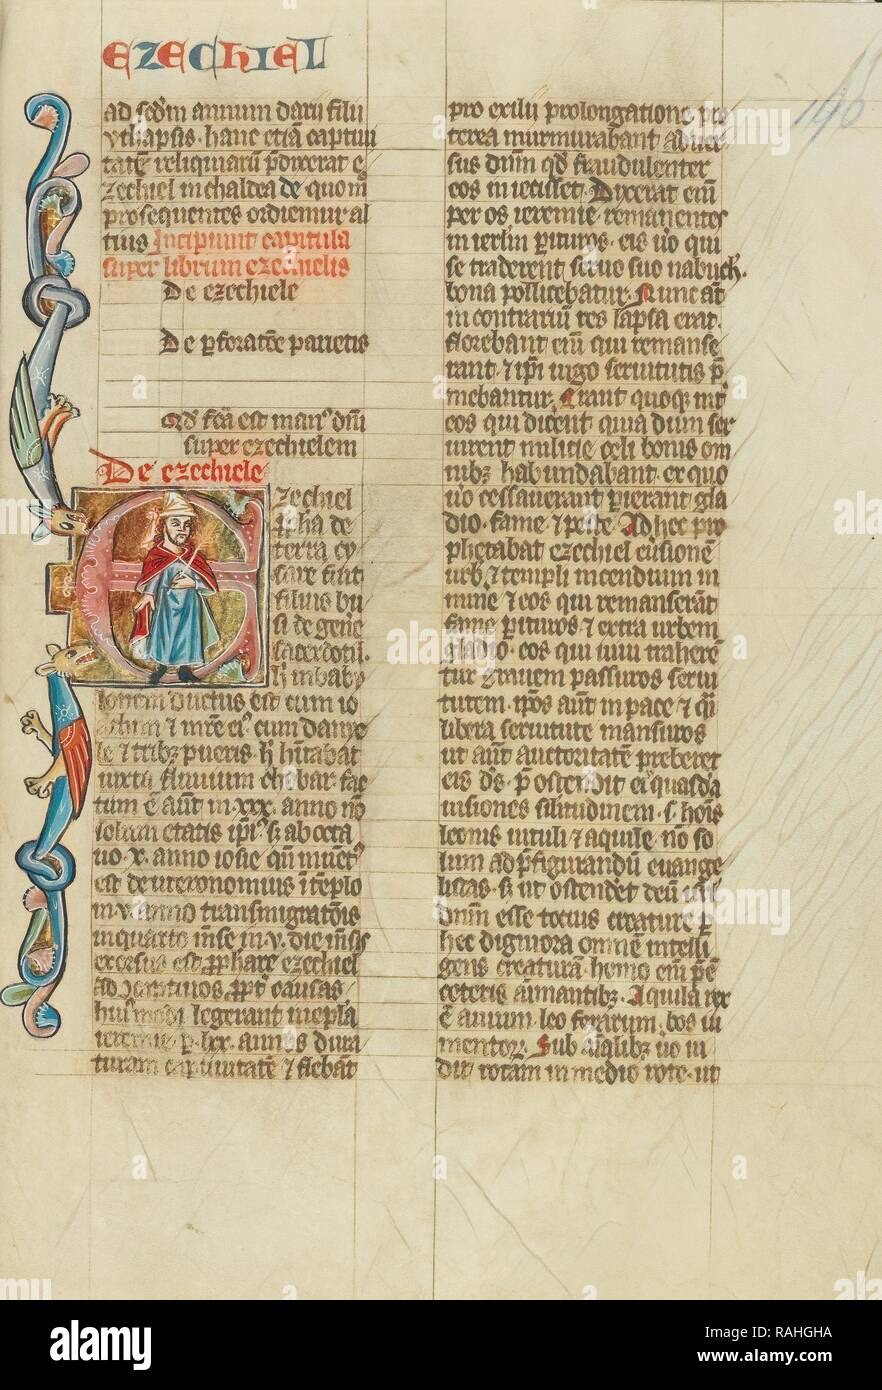 EZECHIEL
146
ad scdm annum darii filii
ythapsis. hanc etiā captiui
tatē reliquiarū pdixerat e
zechiel in chaldea de quo in
prosequentes ordiemur al
tius Incipiunt capitula
super librum ezechielis
De ezechiele
De pforatōe parietis
Qd fcā est man' dni
super ezechielem
De ezechiele
Ezechiel
ppha de
terra cy
sare fuit
filius bu
si de genē
sacerdotū.
h in baby
lonem ductus est cum io
achim et mre ei' cum danye
le et tribz pueris. h hītabat
iuxta fluuium chobar. fac
tum ē aūt in .xxx. anno nō
solum etatis ipi' s; ab octa
uo .x. anno iosie qn inuēt'
est deuteronomius ī tēplo
in .v. anno transmigratōis
in quarto mēse in .v. die mēsis
excersus est pphare ezechiel
ad captiuos ppt causas
huimodi legerant in epla
ieremie p .lxx. annos dura
turam captiuitatē et flebāt
pro exilii prolongatione. pre
terea murmurabant aduer
sus dnm qd fraudulenter
eos in iecisset. Dixerat eni
per os ieremie. remanentes
in ierlm pituros. eis uo qui
se traderent seruo suo nabuch.
bona pollicebatur. Nunc aūt
in contrariū res lapsa erat.
florebant enī qui remanse
rant. et ipi iugo seruitutis p
mebantur. Erant quoque int'
eos qui dicent quia dum ser
uirent militie celi bonis om
nibz habundabant. ex quo
uo cessauerant pierant gla
dio. fame et peste. Ad hec pro
phetabat ezechiel euisionē
urb' et templi incendium in
mine et eos qui remanserāt
fame pituros et extra urbem
gladio. eos qui uiui traherē
tur grauem passuros serui
tutem. ipos aūt in pace et qsi
libera seruitute mansuros
ut aūt auctoritatē preberet
eis ds. p ostendit ei quasdā
uisiones silitudinem .s. hois
leonis uituli et aquile. nō so
lum ad pfigurandū euange
listas. s; ut ostendet deū isrl
dnm esse totius creature p
hec digniora omnē intelli
gens creaturā. homo enī pē
ceteris aīmantibz. Aquila rex
ē auium. leo ferarum. bos iu
mentor. Sub aliqlibz uo ui
dit rotam in medio rote. ut
alamy
alamy
a
a
Image ID: RAHGHA
www.alamy.com